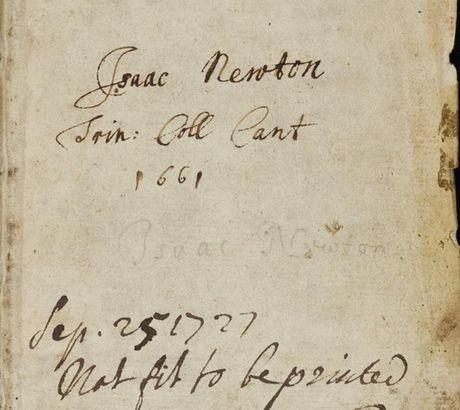 Isaac Newton
Trin: Coll Cant
1661
Isaac Newton
Sep. 25 1727
Not fit to be printed